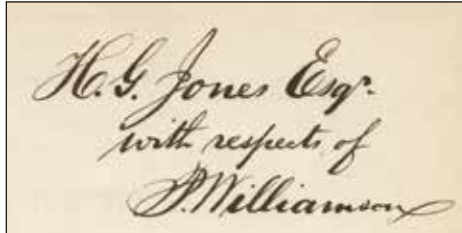 H. G. Jones Esqr.
with respects of
P. Williamson